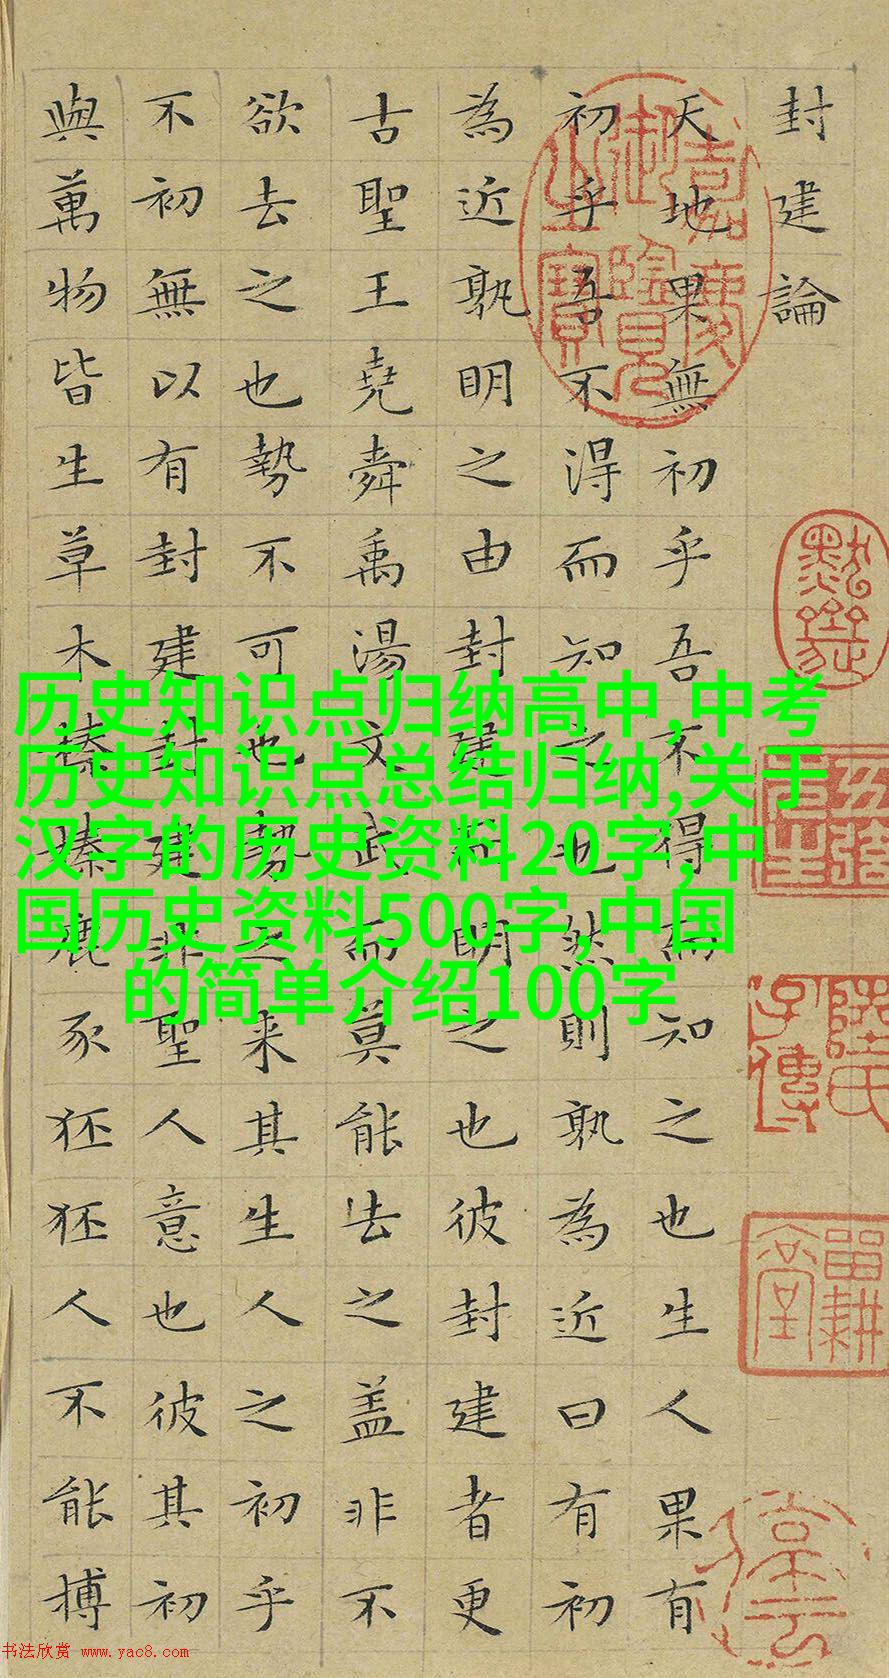 封建論
天地果無初乎吾不得而知之也生人果有
初乎吾不得而知之也然則孰為近曰有初
為近孰明之由封建而明之也彼封建者更
古聖王堯舜禹湯文武而莫能去之盖非不
欲去之也勢不可也勢之来其生人之初乎
不初無以有封建封建非聖人意也彼其初
與萬物皆生草木榛榛鹿豕狉狉人不能搏
嘉慶
御覽
之寶
历史知识点归纳高中,中考
历史知识点总结归纳,关于
汉字的历史资料20字,中
国历史资料500字,中国
的简单介绍100字
书法欣赏 www.yac8.com